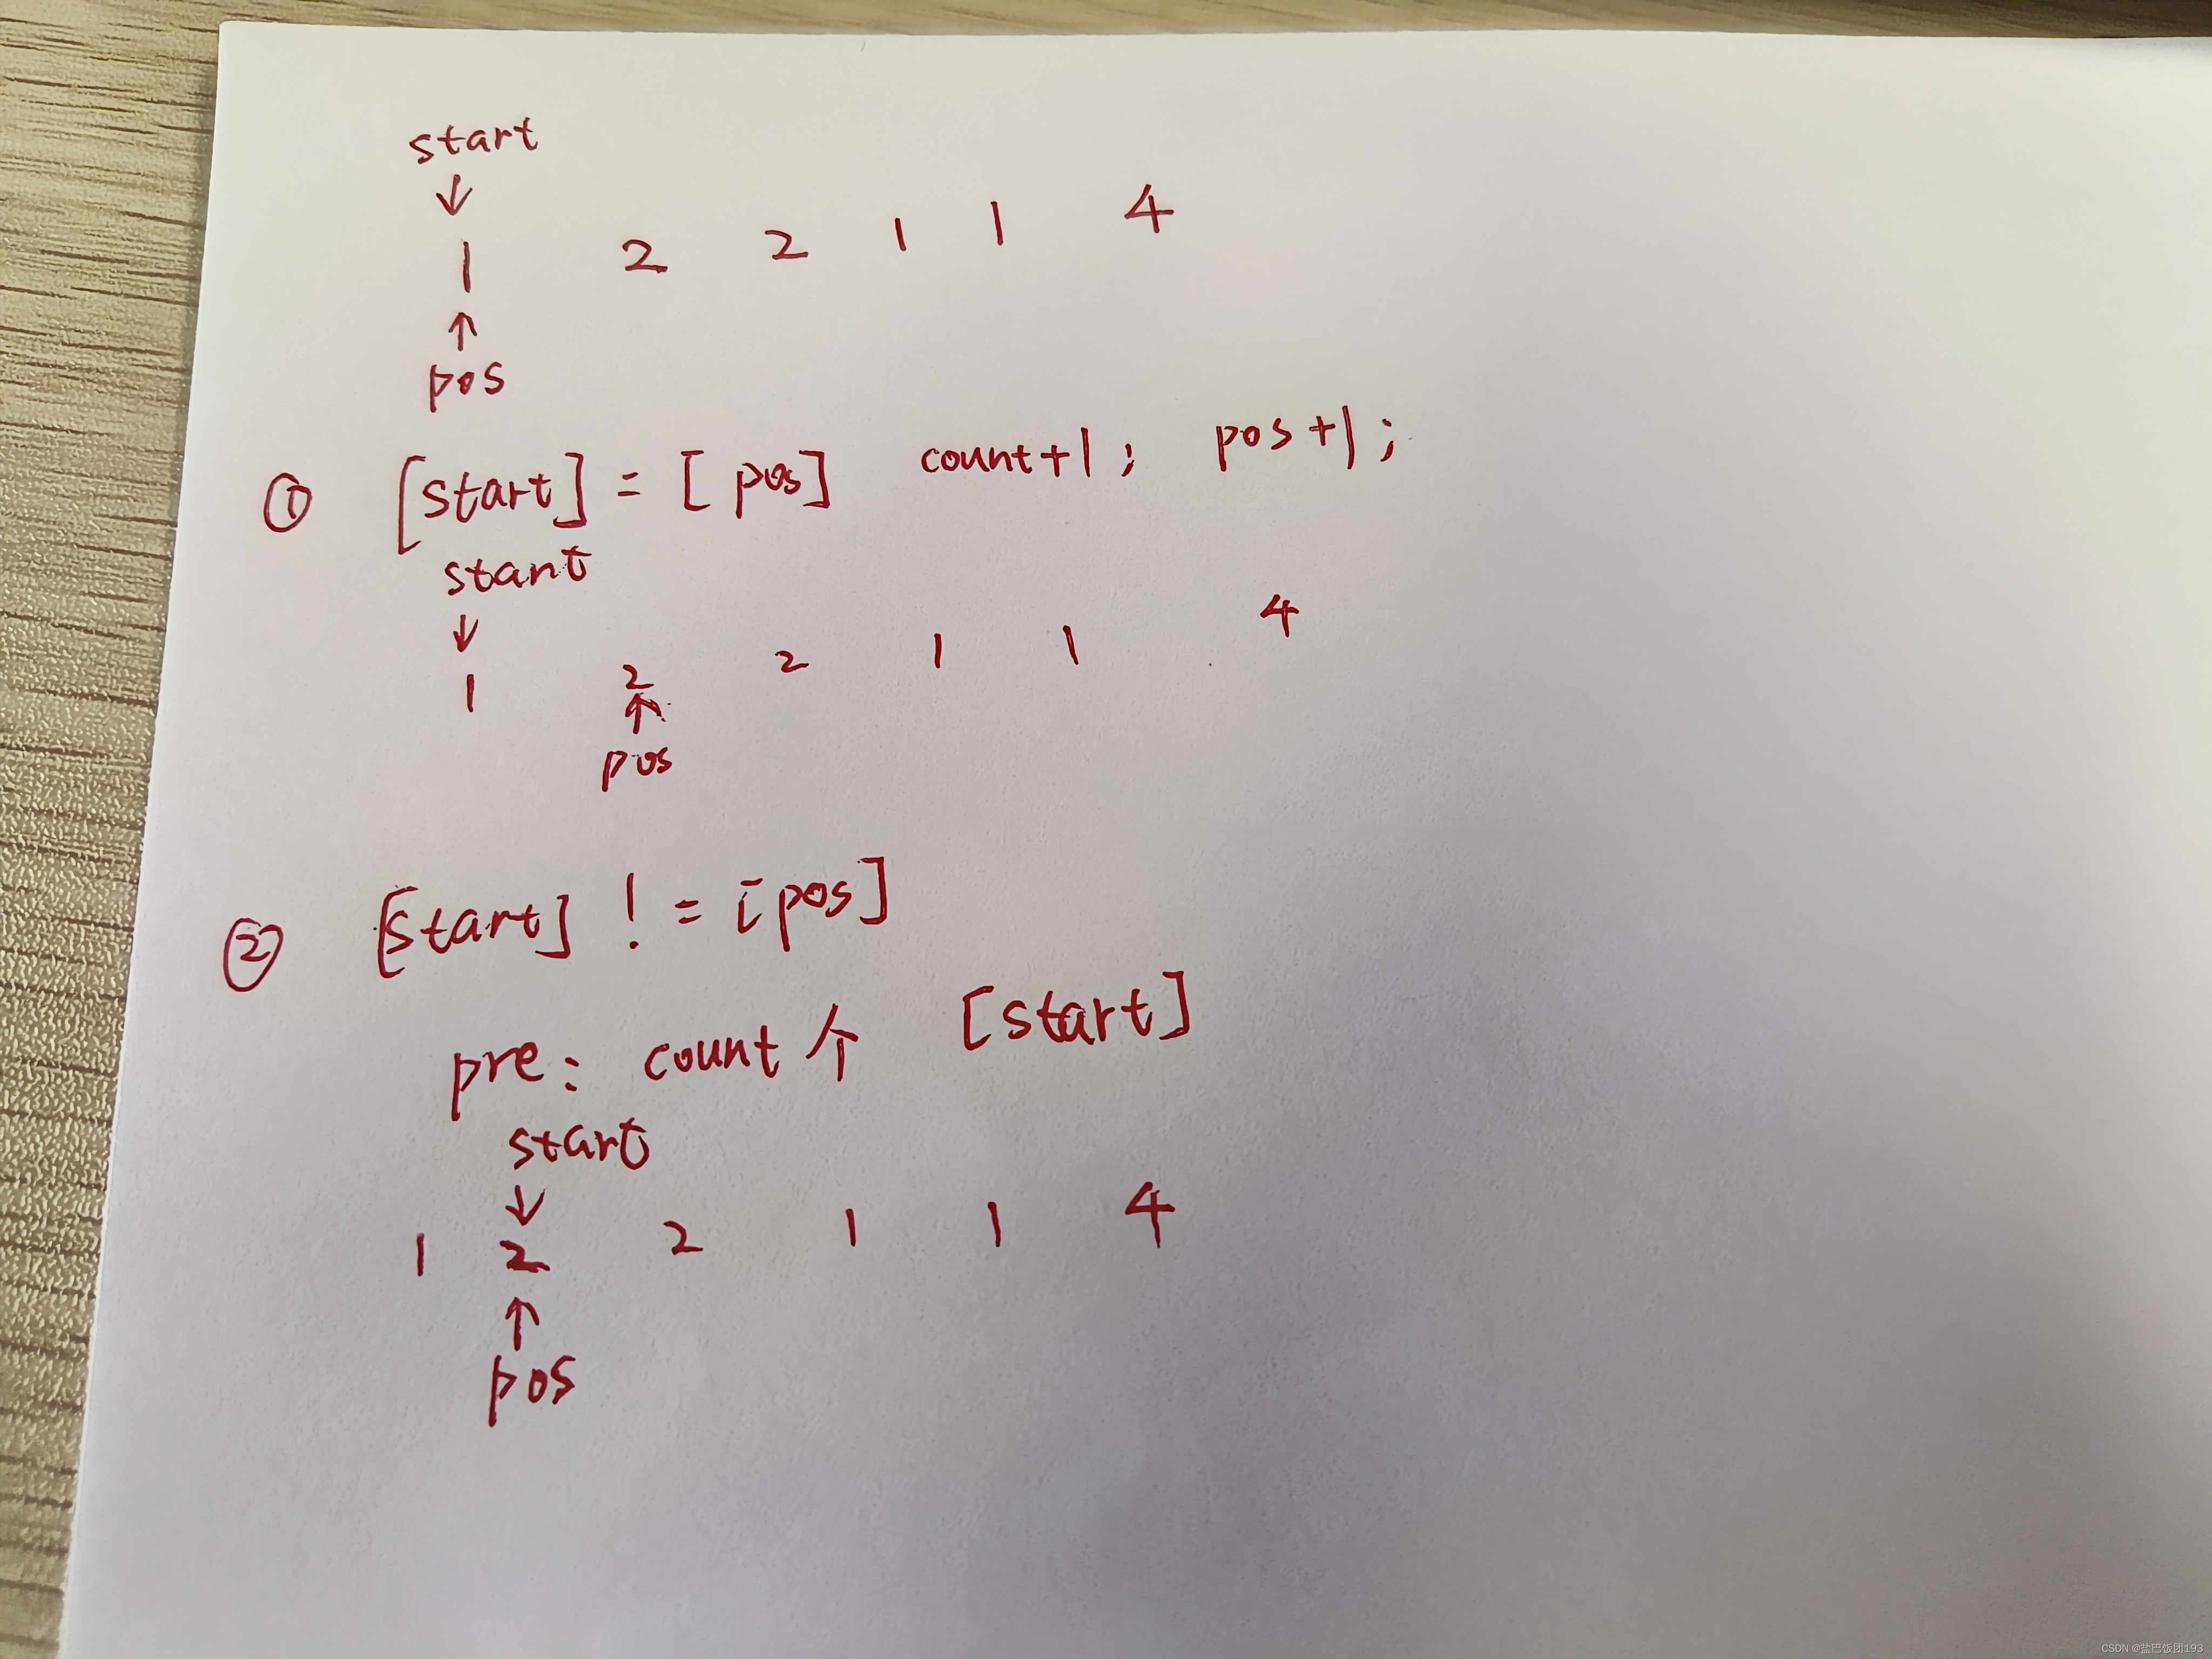 start
↓
1 2 2 1 1 4
↑
pos
① [start] = [pos] count+1; pos+1;
start
↓
1 2 2 1 1 4
↑
pos
② [start] != [pos]
pre: count个 [start]
start
↓
1 2 2 1 1 4
↑
pos
CSDN @盐巴饭团193